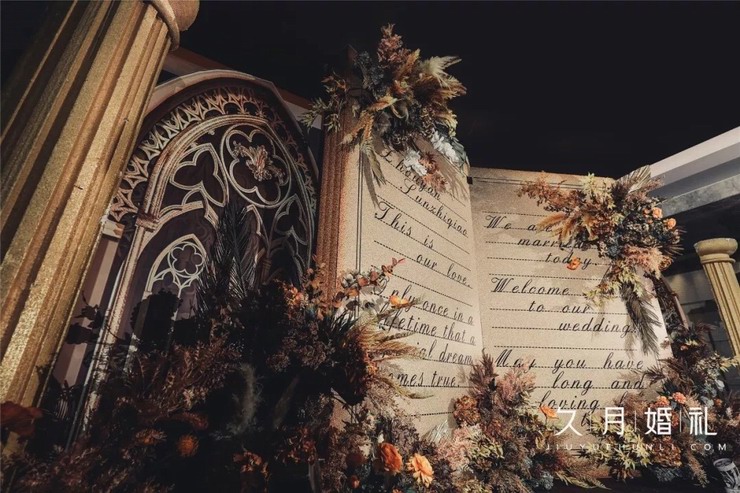 Zhouyan
Sunzhiqiao
This is
our love,
once in a
lifetime that a
dream
comes true.
We are
married
today.
Welcome
to our
wedding
May you have
long and
loving
久月婚礼
JIUYUEHUNLI.COM